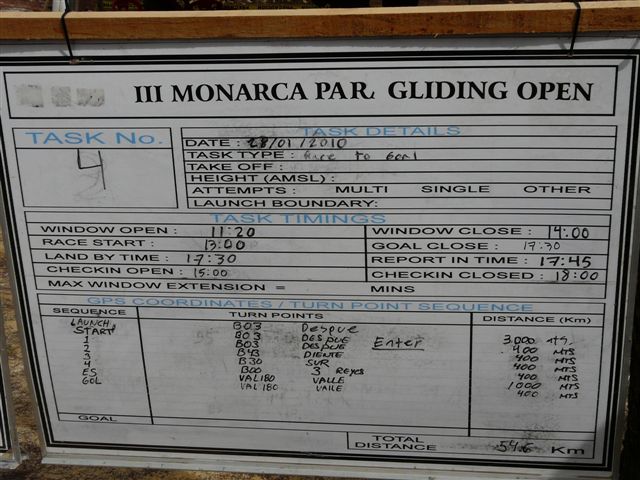 III MONARCA PAR GLIDING OPEN
TASK No.
4
TASK DETAILS
DATE : 28/01/2010
TASK TYPE : Race to Goal
TAKE OFF :
HEIGHT (AMSL) :
ATTEMPTS : MULTI SINGLE OTHER
LAUNCH BOUNDARY:
TASK TIMINGS
WINDOW OPEN : 11:20 WINDOW CLOSE : 14:00
RACE START : 13:00 GOAL CLOSE : 17:30
LAND BY TIME : 17:30 REPORT IN TIME : 17:45
CHECKIN OPEN : 15:00 CHECKIN CLOSED : 18:00
MAX WINDOW EXTENSION = MINS
GPS COORDINATES / TURN POINT SEQUENCE
SEQUENCE TURN POINTS DISTANCE (Km)
LAUNCH B03 Despue
START B03 DESPUE Enter 3.000 mts.
1 B03 DESPUE 400 MTS
2 B43 DIENTE 400 MTS
3 B30 SUR 400 MTS
4 B00 3 Reyes 400 MTS
ES VAL180 VALLE 1000 MTS
GOL VAL180 VALLE 400 MTS
GOAL
TOTAL DISTANCE 54.6 Km